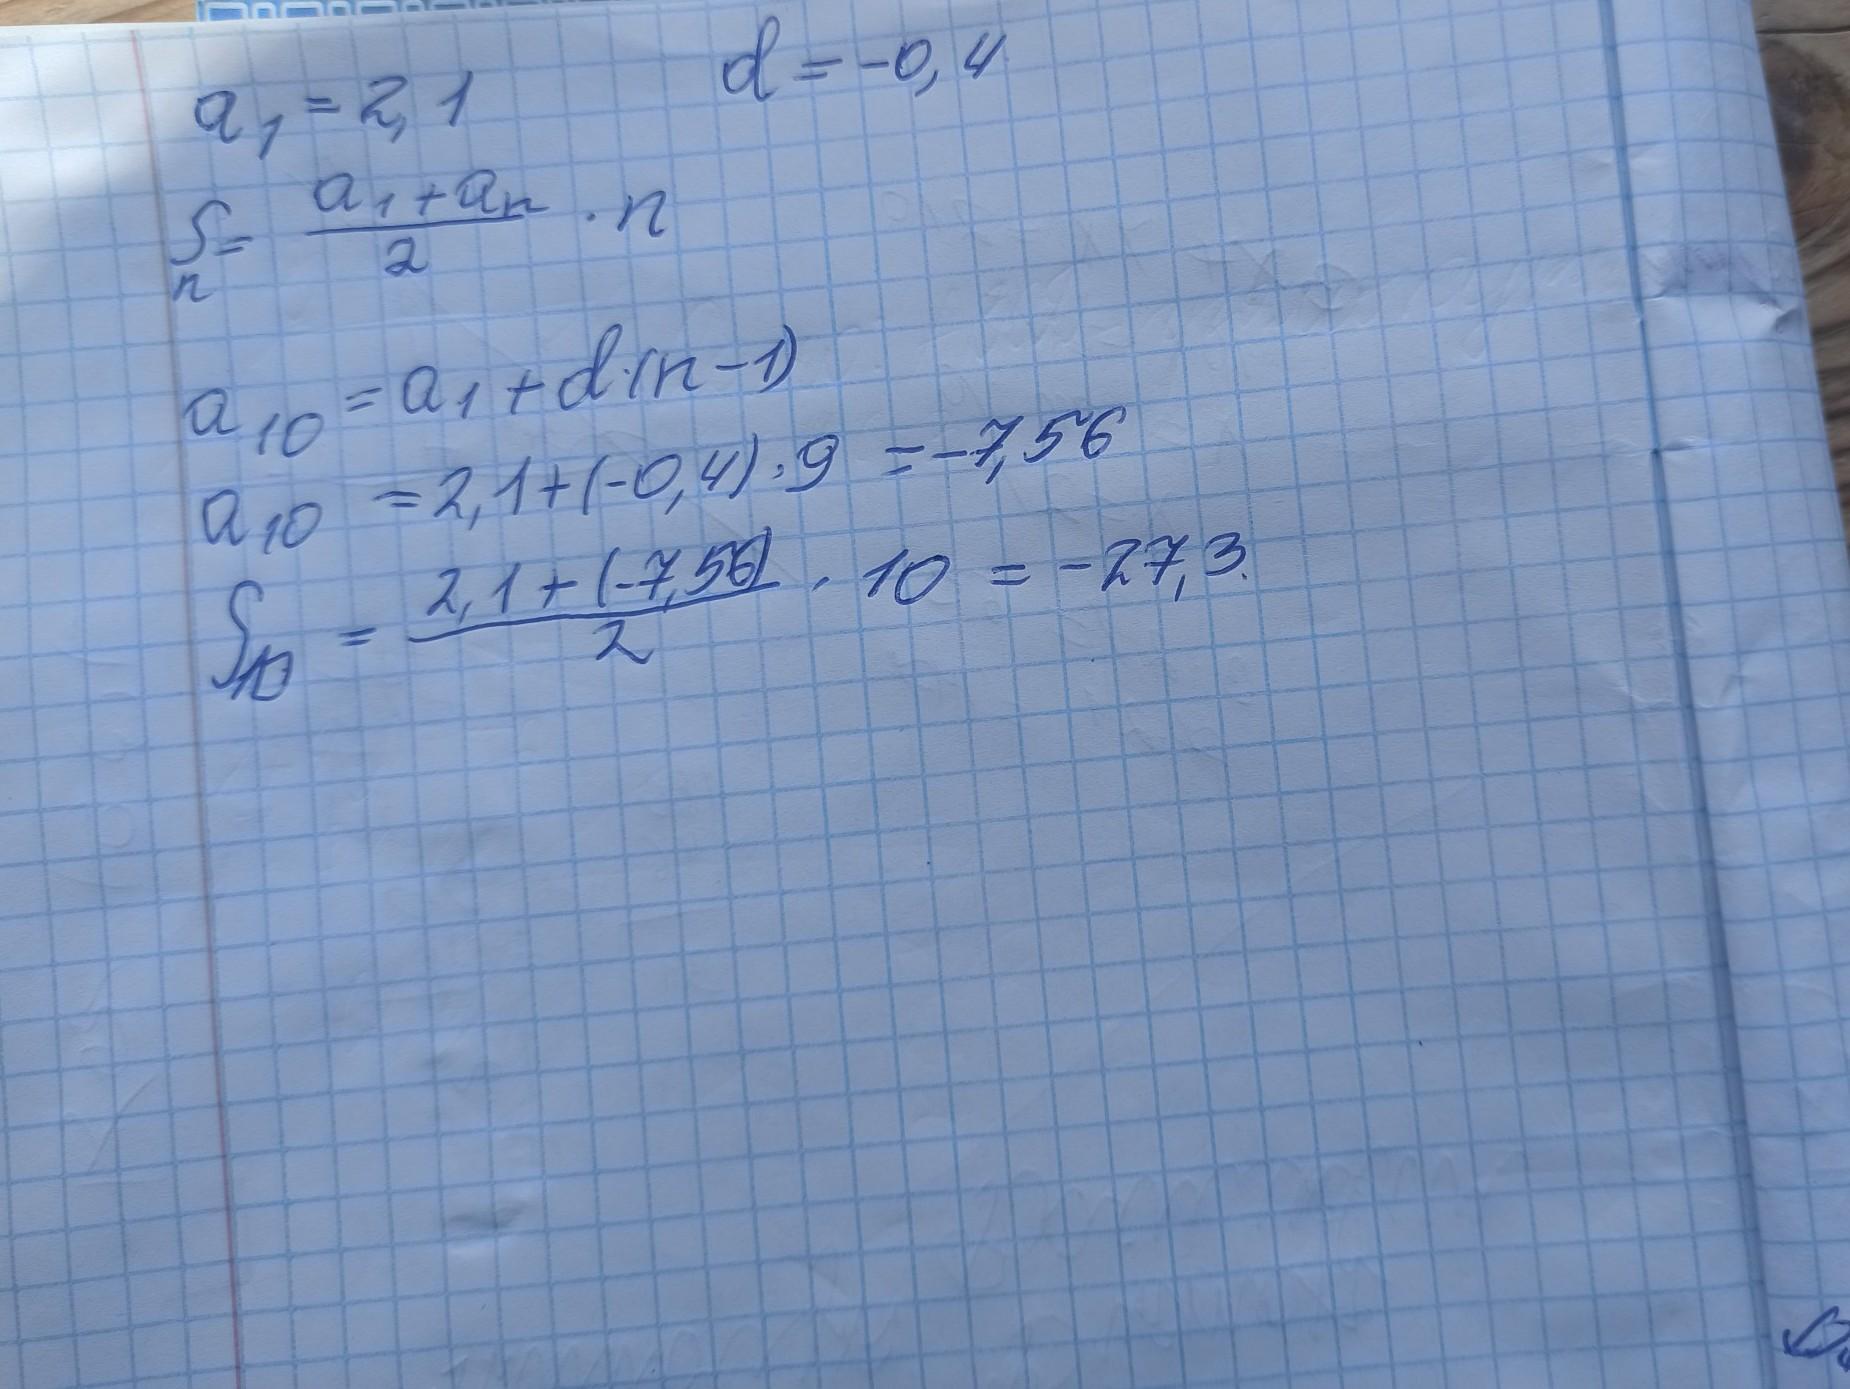 a₁ = 2,1 d = -0,4
Sₙ = (a₁ + aₙ)/2 · n
a₁₀ = a₁ + d·(n-1)
a₁₀ = 2,1 + (-0,4) · 9 = -7,56
S₁₀ = (2,1 + (-7,56))/2 · 10 = -27,3.